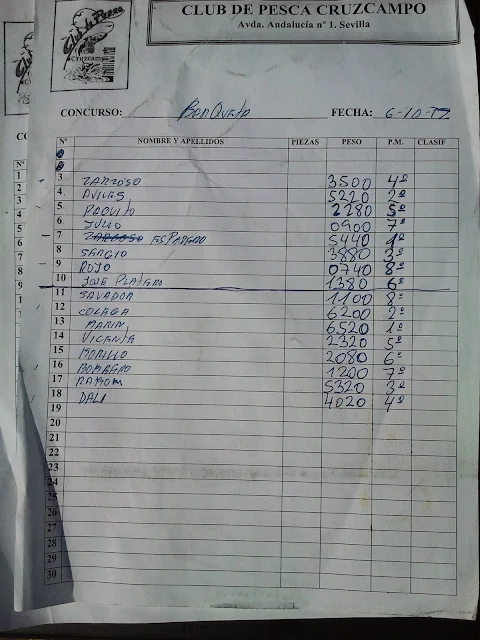 CLUB DE PESCA CRUZCAMPO
Avda. Andalucía nº 1. Sevilla
Club de Pesca
Cruzcampo
CONCURSO: FECHA: 6-10-
Nº NOMBRE Y APELLIDOS PIEZAS PESO P.M. CLASIF
3 ZARZOSO 3500 4º
4 AVILES 5220 2º
5 PAQUITO 2280 5º
6 JULIO 0900 7º
7 ESPARTERO 5440 1º
8 SERGIO 3880 3º
9 ROJO 0740 8º
10 JOSE PLATERO 1380 6º
11 SALVADOR 1100 8º
12 COLAGA 6200 2º
13 MARIN 6520 1º
14 VICENTA 2320 5º
15 MORILLO 2080 6º
16 1200 7º
17 RAMOM 5320 3º
18 DALI 4020 4º
19
20
21
22
23
24
25
26
27
28
29
30